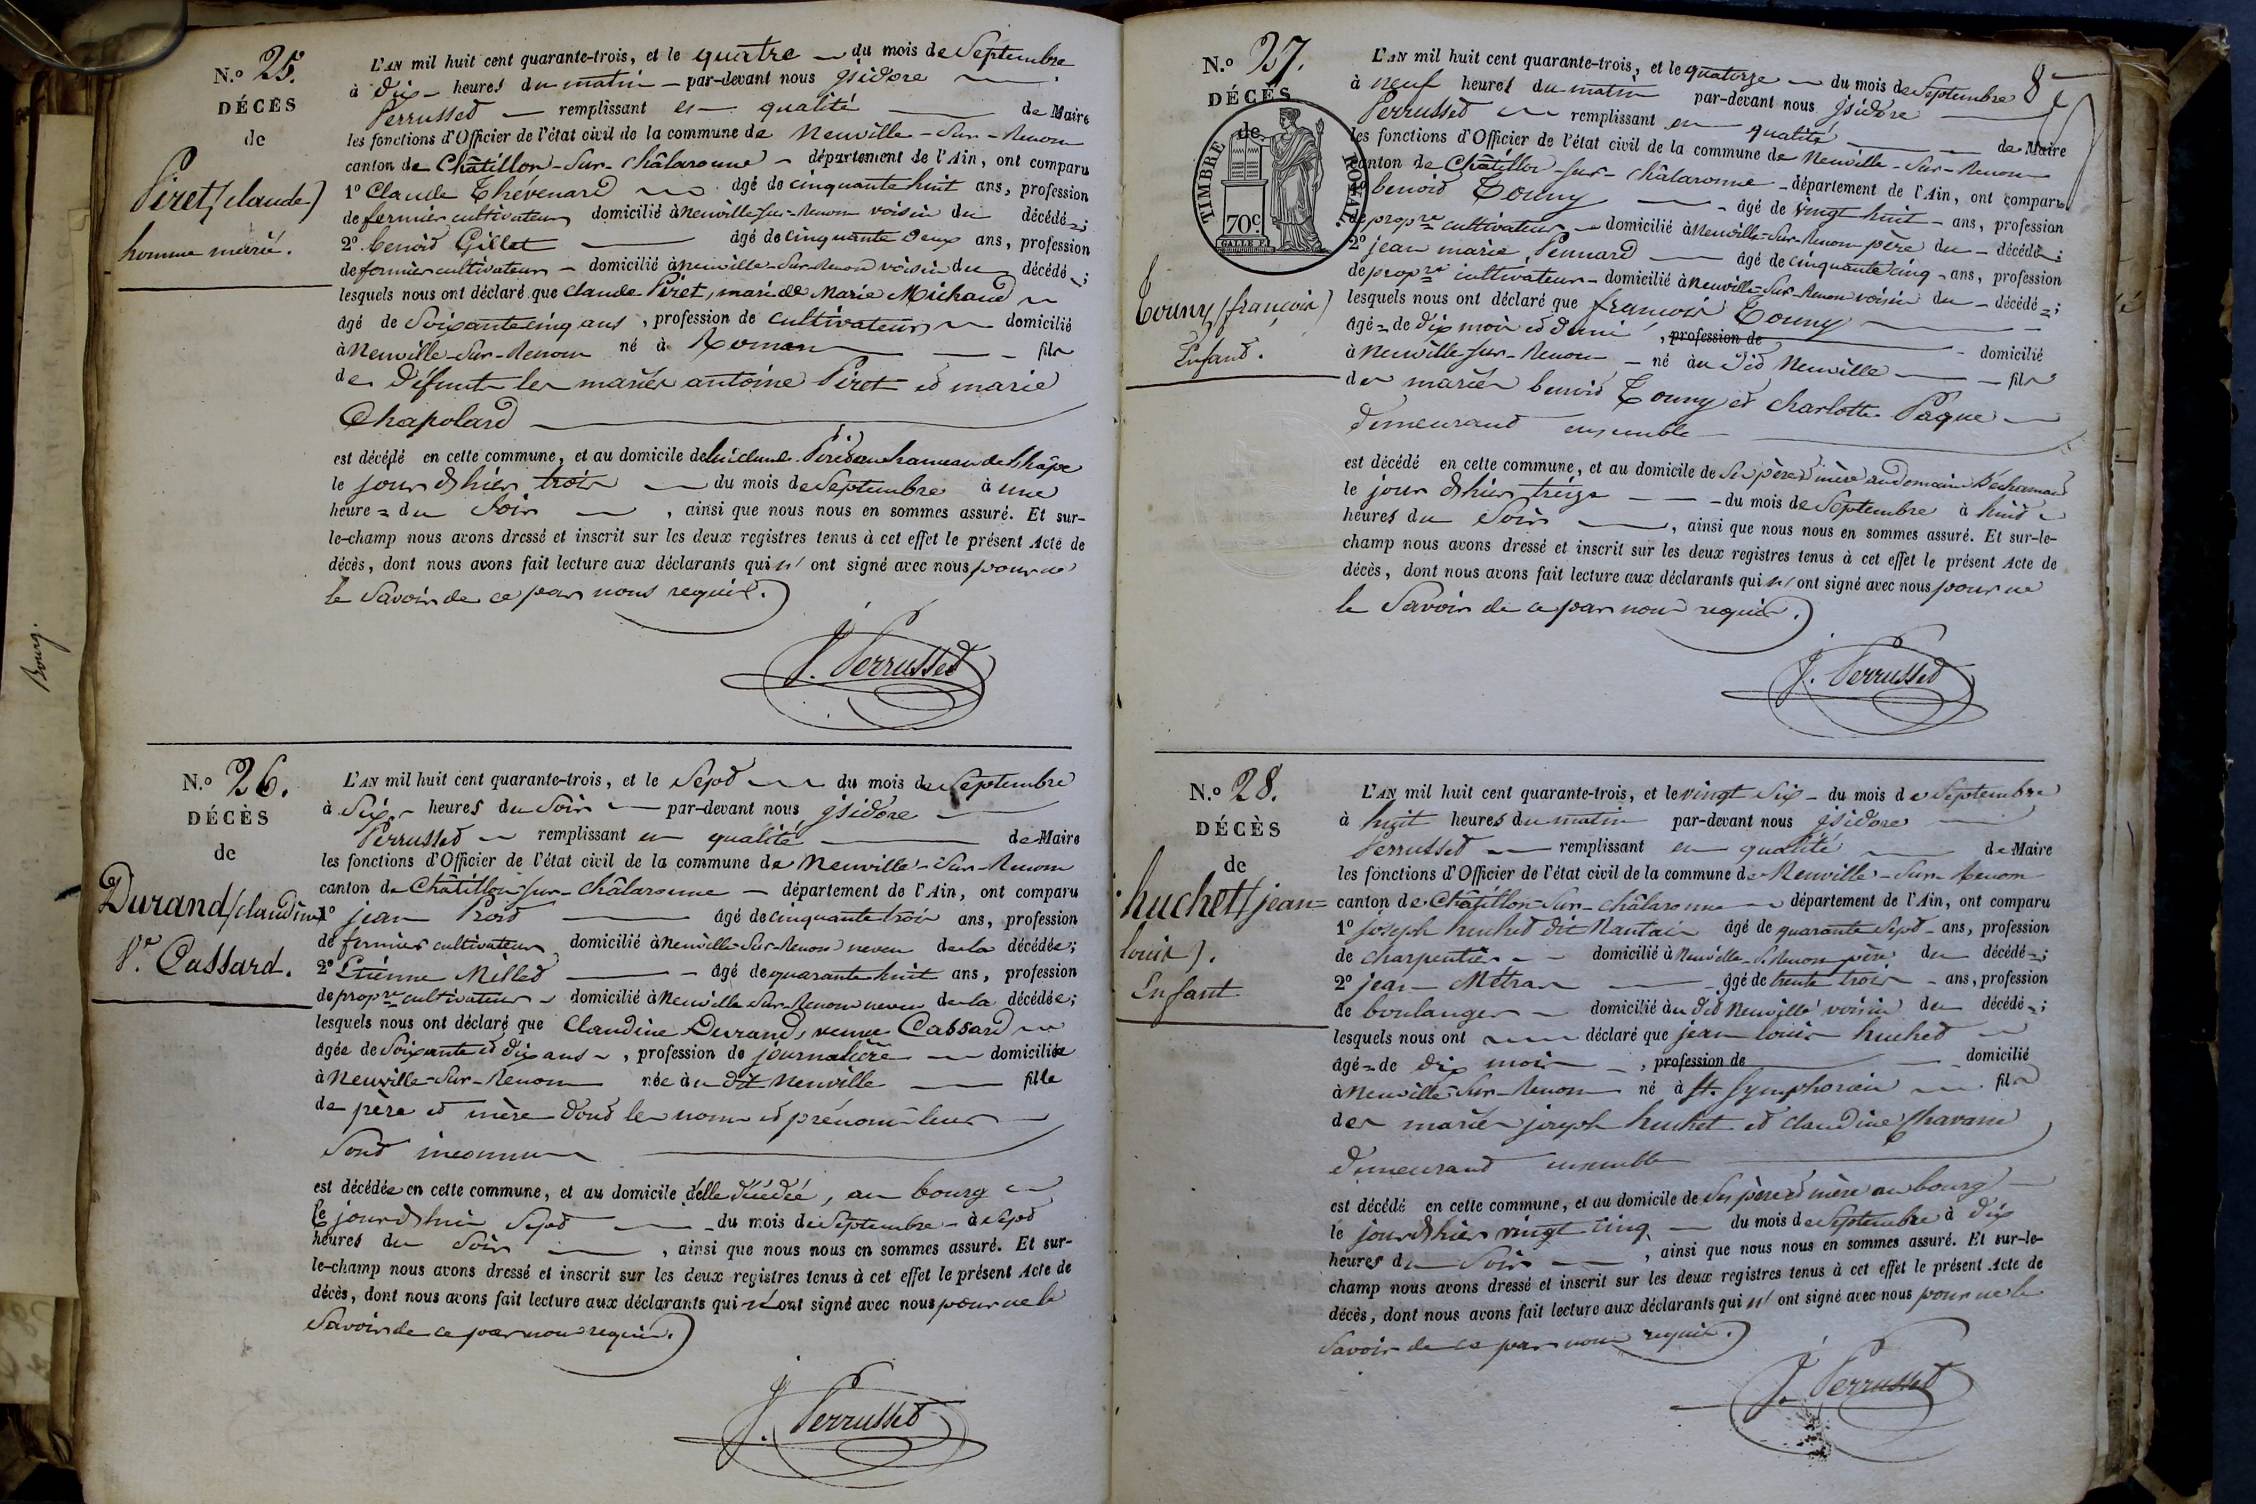 N.o 25.
DÉCÈS
de
Piret (claude)
homme marié.
L'AN mil huit cent quarante-trois, et le quatre du mois de Septembre
à dix heures du matin par-devant nous jsidore
Perrussed remplissant en qualité de Maire
les fonctions d'Officier de l'état civil de la commune de Neuville-Sur-Renom
canton de Châtillon-Sur-Châlaronne département de l'Ain, ont comparu
1o Claude Thévenard âgé de cinquante huit ans, profession
de fermier cultivateur domicilié à Neuville sur-Renom voisin du décédé ;
2o benoid Gillet âgé de cinquante deux ans, profession
de fermier cultivateur domicilié à Neuville-Sur-Renom voisin du décédé ;
lesquels nous ont déclaré que claude Piret, mari de Marie Michaud
âgé de Soixante cinq ans, profession de cultivateur domicilié
à Neuville-Sur-Renom né à Roman fils
de défunts les mariés antoine Piret et marie
Chapoland
est décédé en cette commune, et au domicile de lui claude Piret au hameau de
le jour d'hier trois du mois de Septembre à une
heure du Soir, ainsi que nous nous en sommes assuré. Et sur-
le-champ nous avons dressé et inscrit sur les deux registres tenus à cet effet le présent Acte de
décès, dont nous avons fait lecture aux déclarants qui n'ont signé avec nous pour ne
le Savoir de ce par nous requis.
J. Perrussed
N.o 26.
DÉCÈS
de
Durand (claudine)
Ve. Cassard.
L'AN mil huit cent quarante-trois, et le Sept du mois de Septembre
à Six heures du Soir par-devant nous jsidore
Perrussed remplissant en qualité de Maire
les fonctions d'Officier de l'état civil de la commune de Neuville-Sur-Renom
canton de Châtillon-sur-Châlaronne département de l'Ain, ont comparu
1o jean Prod âgé de cinquante trois ans, profession
de fermier cultivateur domicilié à Neuville-Sur-Renom neveu de la décédée ;
2o Etienne Milled âgé de quarante huit ans, profession
de propre cultivateur domicilié à Neuville Sur-Renom neveu de la décédée ;
lesquels nous ont déclaré que Claudine Durand, veuve Cassard
âgée de Soixante et dix ans, profession de journalière domiciliée
à Neuville-Sur-Renom née au dit Neuville fille
de père et mère dont les noms et prénoms leur
sont inconnus
est décédée en cette commune, et au domicile d'elle décédée, au bourg
le jourd'hui Sept du mois de Septembre à Sept
heures du Soir, ainsi que nous nous en sommes assuré. Et sur-
le-champ nous avons dressé et inscrit sur les deux registres tenus à cet effet le présent Acte de
décès, dont nous avons fait lecture aux déclarants qui n'ont signé avec nous pour ne le
Savoir de ce par nous requis.
J. Perrussed
Bourg.
8
N.o 27.
DÉCÈS
de
TIMBRE ROYAL.
70c.
Touny (françois)
Enfant.
L'AN mil huit cent quarante-trois, et le quatorze du mois de Septembre
à neuf heures du matin par-devant nous jsidore
Perrussed remplissant en qualité de Maire
les fonctions d'Officier de l'état civil de la commune de Neuville-Sur-Renom
canton de Châtillon-sur-Châlaronne département de l'Ain, ont comparu
1o benoid Touny âgé de vingt huit ans, profession
de propre cultivateur domicilié à Neuville-Sur-Renom père du décédé ;
2o jean marie Pennard âgé de cinquante cinq ans, profession
de propre cultivateur domicilié à Neuville-Sur-Renom voisin du décédé ;
lesquels nous ont déclaré que francois Touny
âgé de dix mois et demi, profession de domicilié
à Neuville-sur-Renom né au dit Neuville fils
des mariés benoid Touny et charlotte Paque
demeurant ensemble
est décédé en cette commune, et au domicile de Ses père et mère au domaine
le jour d'hier treize du mois de Septembre à huit
heures du Soir, ainsi que nous nous en sommes assuré. Et sur-le-
champ nous avons dressé et inscrit sur les deux registres tenus à cet effet le présent Acte de
décès, dont nous avons fait lecture aux déclarants qui n'ont signé avec nous pour ne
le Savoir de ce par nous requis.
J. Perrussed
N.o 28.
DÉCÈS
de
huchet (jean=
louis).
Enfant
L'AN mil huit cent quarante-trois, et le vingt Six du mois de Septembre
à huit heures du matin par-devant nous jsidore
Perrussed remplissant en qualité de Maire
les fonctions d'Officier de l'état civil de la commune de Neuville-Sur-Renom
canton de Châtillon-Sur-Châlaronne département de l'Ain, ont comparu
1o joseph huched dit Nantais âgé de quarante Sept ans, profession
de charpentier domicilié à Neuville-S-Renom père du décédé ;
2o jean Métras âgé de trente trois ans, profession
de boulanger domicilié au dit Neuville voisin du décédé ;
lesquels nous ont déclaré que jean louis huched
âgé de dix mois, profession de domicilié
à Neuville-Sur-Renom né à St. Symphorien fils
des mariés joseph huchet et claudine Chavann
demeurant ensemble
est décédé en cette commune, et au domicile de Ses père et mère au bourg
le jour d'hier vingt cinq du mois de Septembre à dix
heures du Soir, ainsi que nous nous en sommes assuré. Et sur-le-
champ nous avons dressé et inscrit sur les deux registres tenus à cet effet le présent Acte de
décès, dont nous avons fait lecture aux déclarants qui n'ont signé avec nous pour ne le
Savoir de ce par nous requis.
J. Perrussed